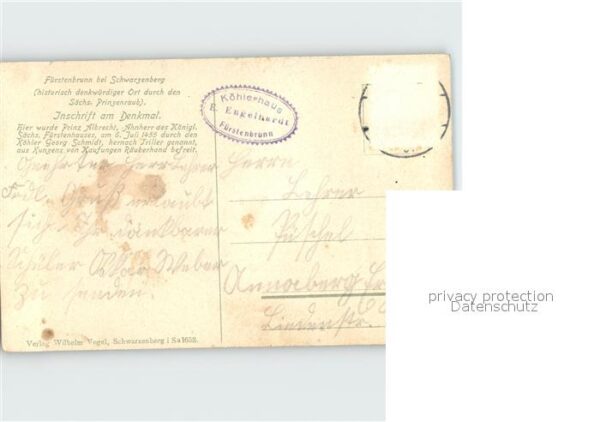 Fürstenbrunn bei Schwarzenberg
(historisch denkwürdiger Ort durch den
Sächs. Prinzenraub).
Inschrift am Denkmal.
Hier wurde Prinz Albrecht, Ahnherr des Königl.
Sächs. Fürstenhauses, am 8. Juli 1455 durch den
Köhler Georg Schmidt, hernach Triller genannt,
aus Kunzens von Kaufungen Räuberhand befreit.
Köhlerhaus
E. Engelhardt
Fürstenbrunn
Geehrter Herr Lehrer
Frdl. Gruß erlaubt
sich Ihr dankbarer
Schüler Oskar Weber
zu senden.
Herrn
Lehrer
Püschel
Annaberg
Lindenstr.
Verlag Wilhelm Vogel, Schwarzenberg i Sa 1652.
privacy protection
Datenschutz